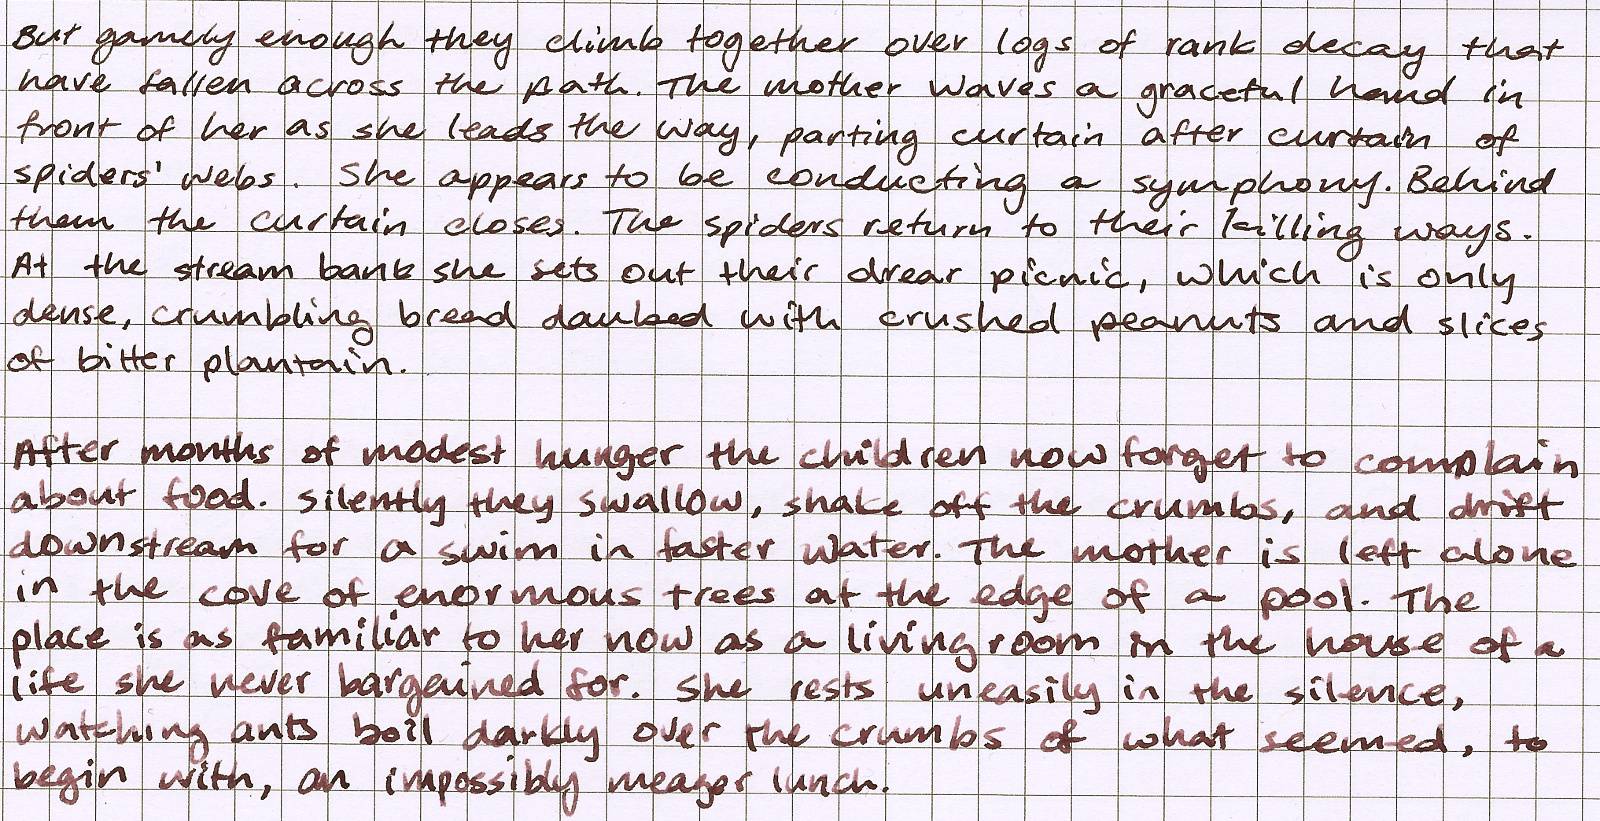 But gamely enough they climb together over logs of rank decay that
have fallen across the path. The mother waves a graceful hand in
front of her as she leads the way, parting curtain after curtain of
spiders' webs. She appears to be conducting a symphony. Behind
them the curtain closes. The spiders return to their killing ways.
At the stream bank she sets out their drear picnic, which is only
dense, crumbling bread daubed with crushed peanuts and slices
of bitter plantain.
After months of modest hunger the children now forget to complain
about food. Silently they swallow, shake off the crumbs, and drift
downstream for a swim in faster water. The mother is left alone
in the cove of enormous trees at the edge of a pool. The
place is as familiar to her now as a living room in the house of a
life she never bargained for. She rests uneasily in the silence,
watching ants boil darkly over the crumbs of what seemed, to
begin with, an impossibly meager lunch.